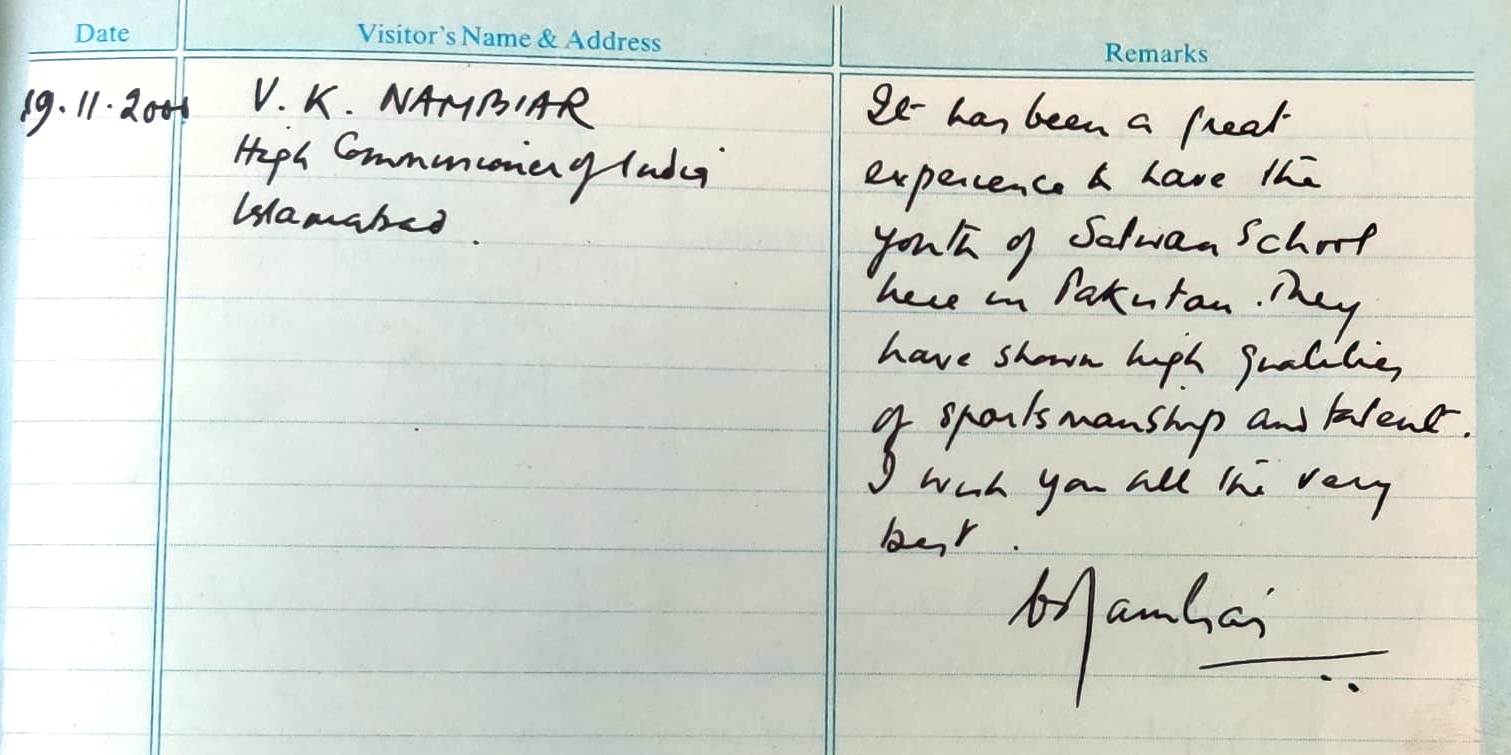 Date Visitor's Name & Address Remarks
19.11.2001 V. K. NAMBIAR
High Commissioner of India
Islamabad.
It has been a great
experience to have the
youth of Salwan School
here in Pakistan. They
have shown high qualities
of sportsmanship and talent.
I wish you all the very
best.